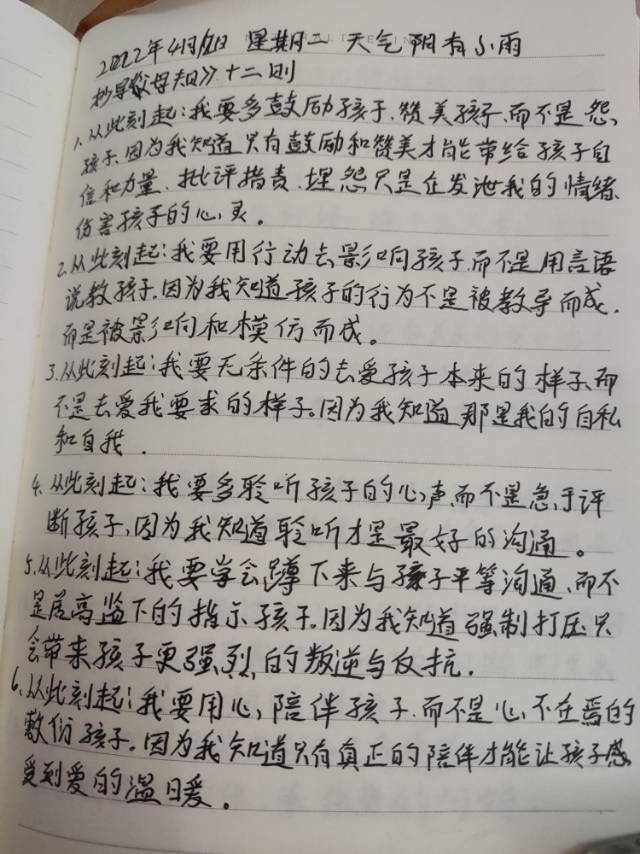 2022年4月12日 星期二 天气 阴有小雨
抄写《父母规》十二则
1.从此刻起:我要多鼓励孩子、赞美孩子,而不是怨
孩子,因为我知道只有鼓励和赞美才能带给孩子自
信和力量,批评指责、埋怨只是在发泄我的情绪、
伤害孩子的心灵。
2.从此刻起:我要用行动去影响孩子,而不是用言语
说教孩子,因为我知道孩子的行为不是被教导而成,
而是被影响和模仿而成。
3.从此刻起:我要无条件的去爱孩子本来的样子,而
不是去爱我要求的样子。因为我知道那是我的自私
和自我.
4.从此刻起:我要多聆听孩子的心声,而不是急于评
断孩子,因为我知道聆听才是最好的沟通。
5.从此刻起:我要学会蹲下来与孩子平等沟通,而不
是居高监下的指示孩子.因为我知道强制打压只
会带来孩子更强烈的叛逆与反抗.
6.从此刻起:我要用心陪伴孩子.而不是心不在焉的
敷衍孩子。因为我知道只有真正的陪伴才能让孩子感
受到爱的温暖。